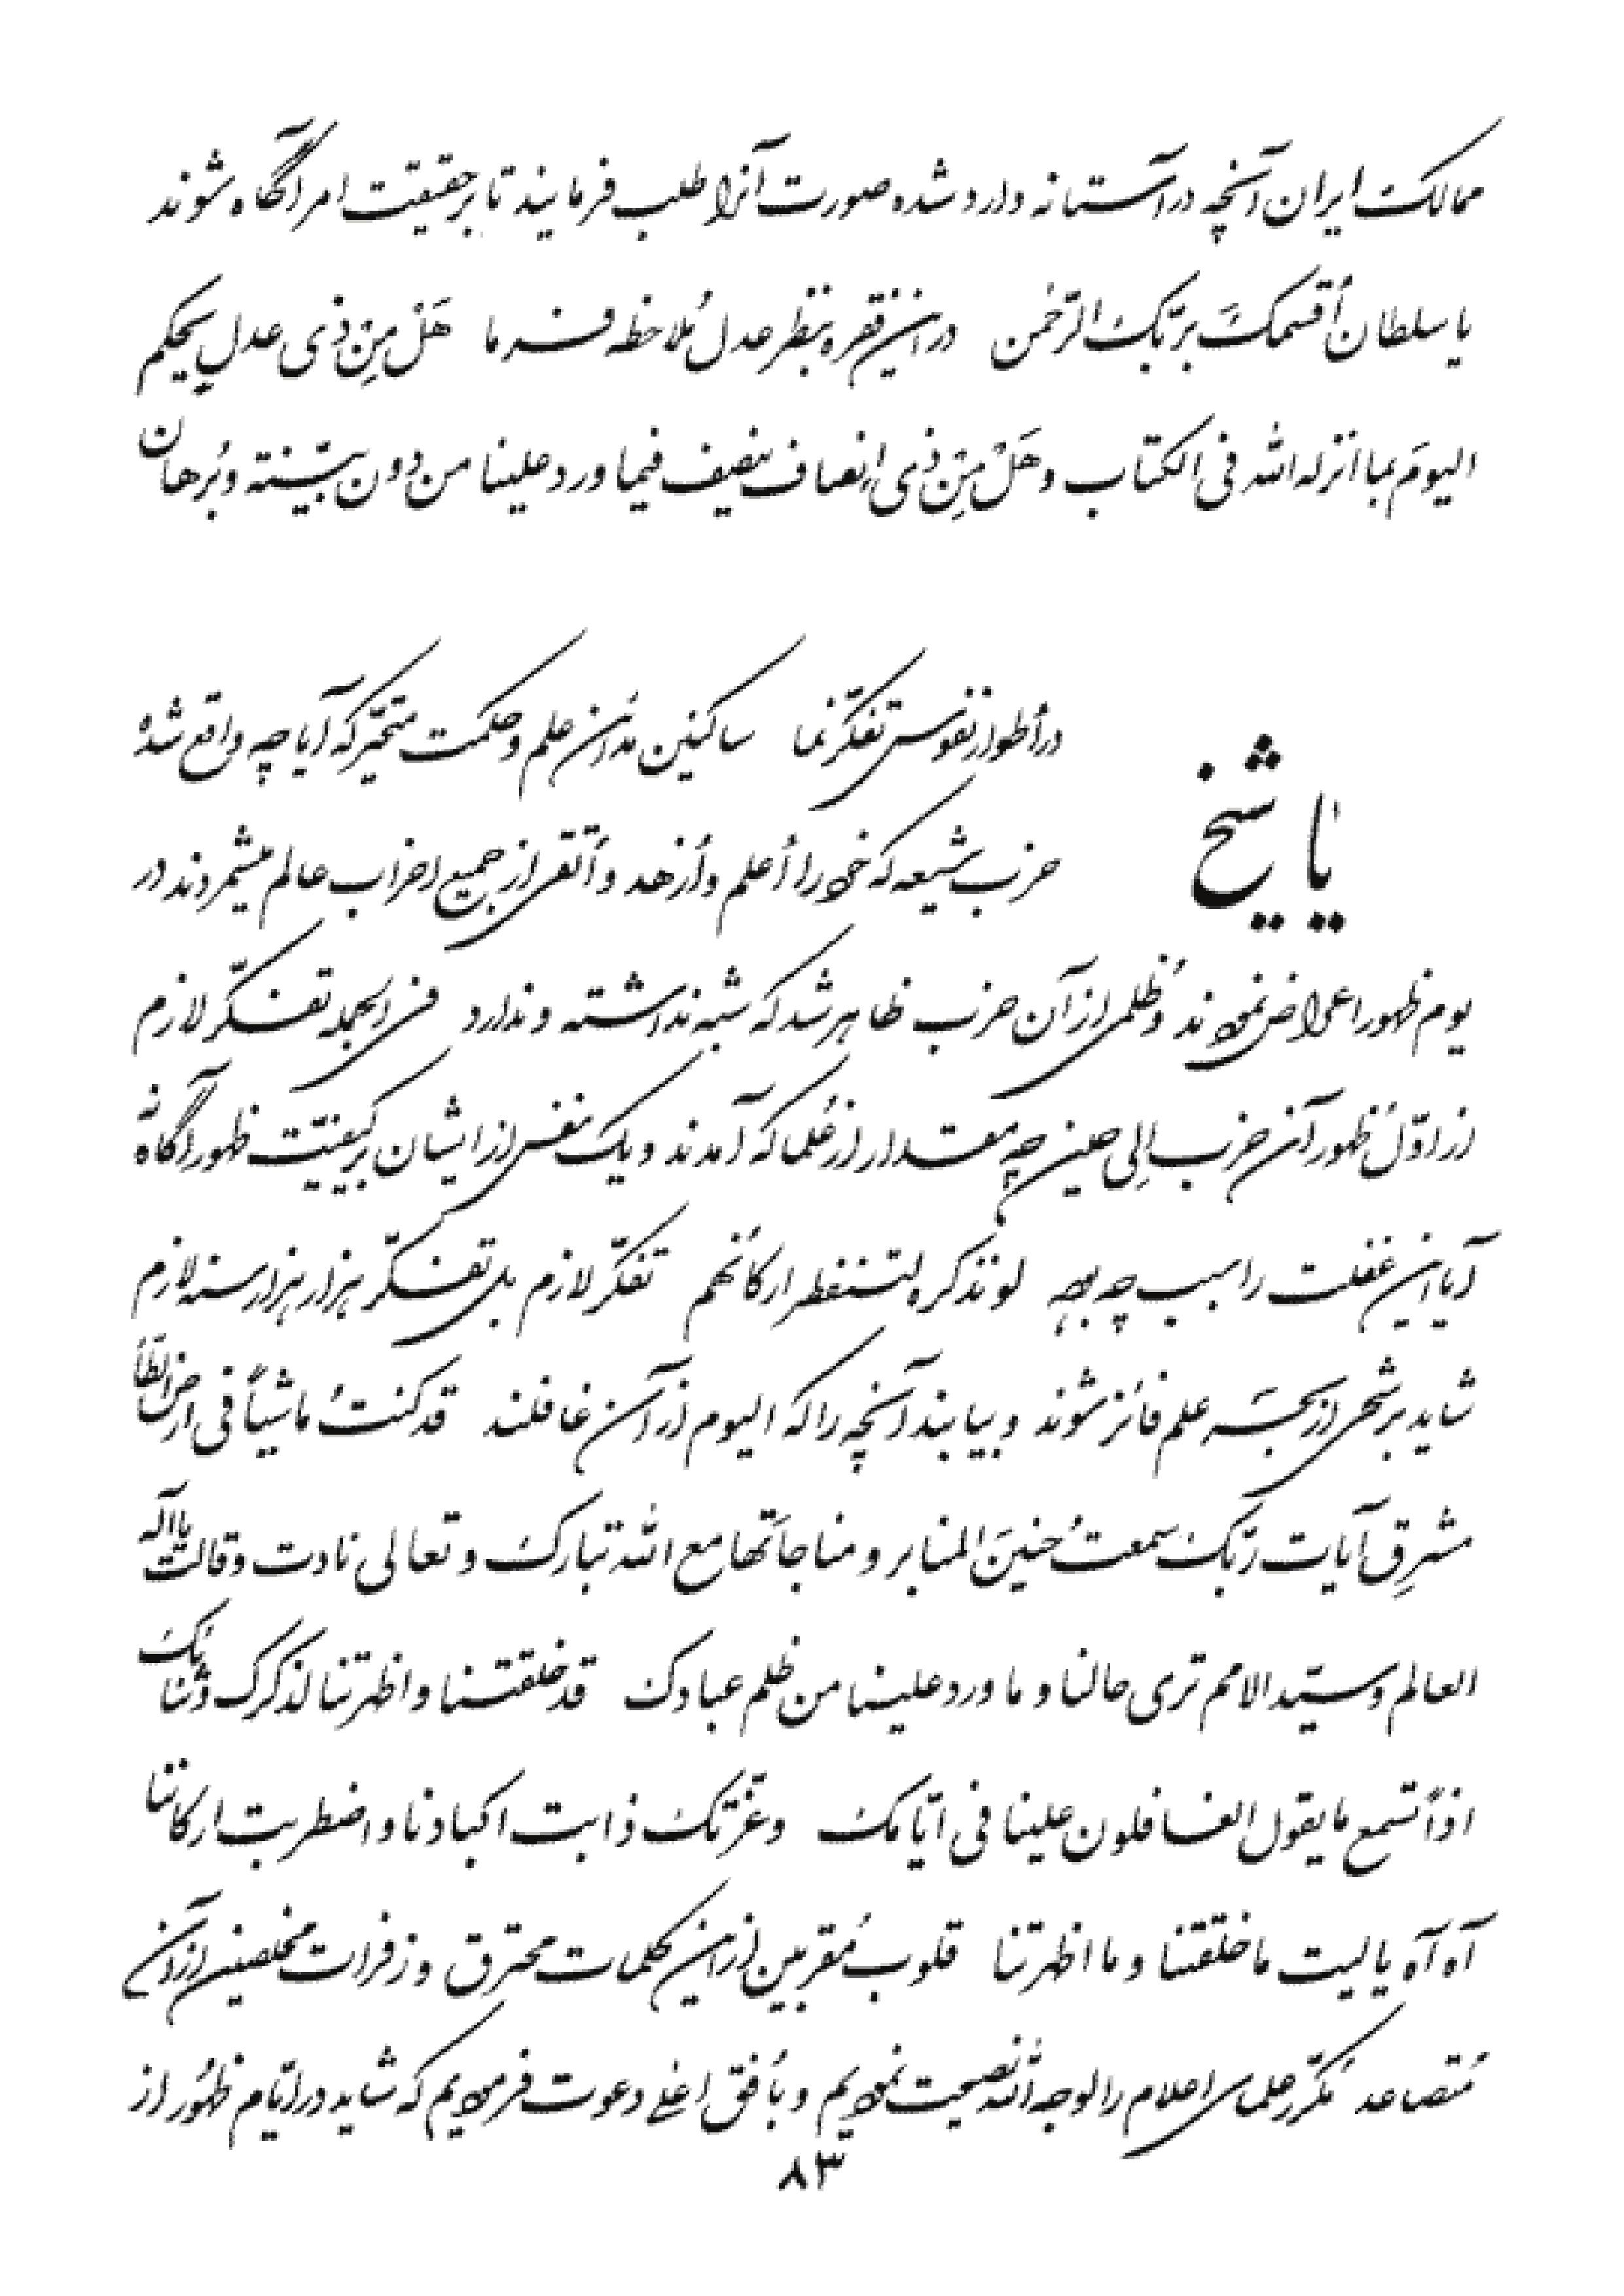 ممالک ایران آنچه در آستانه وارد شده صورت آنرا طلب فرمایند تا بر حقیقت امر آگاه شوند
یا سلطان أُقسمکَ بربّک الرّحمن در این فقره بنظر عدل مُلاحظه فرما هَلْ مِنْ ذی عدلٍ یحکم
الیومَ بما انزله الله فی الکتاب و هَلْ مِنْ ذی اِنصاف ینصِف فیما ورد علینا من دون بیّنة و بُرهان
یا شیخ
در أطوار نفوس تفکّر نما ساکنین مدائن علم و حکمت متحیّر که آیا چه واقع شده
حزب شیعه که خود را أعلم و أزهد و أتقی از جمیع احزاب عالم میشمردند در
یوم ظهور اعراض نمودند و ظُلمی از آن حزب ظاهر شد که شبه نداشته و ندارد فی الجمله تفکّر لازم
از اوّل ظهور آن حزب اِلی حین چه مقدار از عُلما که آمدند و یک نفس از ایشان بر کیفیّت ظهور آگاه نه
آیا این غفلت را سبب چه بوده لو نذکره لتنفطر ارکانهم تفکّر لازم بل تفکّر هزار هزار سنه لازم
شاید برشحی از بحر علم فائز شوند و بیابند آنچه را که الیوم از آن غافلند قد کنتُ ماشیاً فی ارض الطّاء
مشرِقِ آیات ربّک سمعتُ حنینَ المنابر و مناجاتَها مع الله تبارک و تعالی نادت و قالت یا اله
العالم و سیّد الامم تری حالنا و ما ورد علینا من ظلم عبادک قد خلقتنا و اظهرتنا لذکرک و ثنائک
اذاً تسمع ما یقول الغافلون علینا فی ایّامک و عزّتک ذابت اکبادنا و اضطربت ارکاننا
آه آه یا لیت ما خلقتنا و ما اظهرتنا قلوب مُقرّبین از این کلمات محترق و زفرات مخلصین از آن
مُتصاعد مُکرّر علمای اعلام را لوجه الله نصیحت نمودیم و بأُفق اعلی دعوت فرمودیم که شاید در ایّام ظهُور از
۸۳